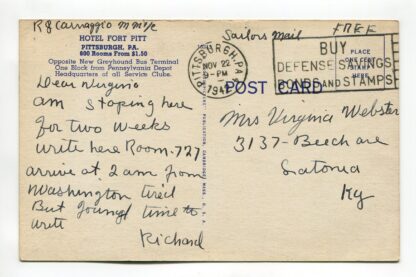 R J Carnaggio M M 1/c
HOTEL FORT PITT
PITTSBURGH, PA.
600 Rooms From $1.50
Opposite New Greyhound Bus Terminal
One Block from Pennsylvania Depot
Headquarters of all Service Clubs.
Dear Virginia
am stoping here
for two weeks
write here Room-727
arrive at 2 am from
Washington tired
But found time to
write
Richard
Sailors Mail
FREE
PITTSBURGH, PA.
NOV 22
9-PM
194
BUY
DEFENSE SAVINGS
BONDS AND STAMPS
PLACE
ONE CENT
STAMP
HERE
POST CARD
Mrs Virginia Webster
3137-Beech ave
Latonia
Ky